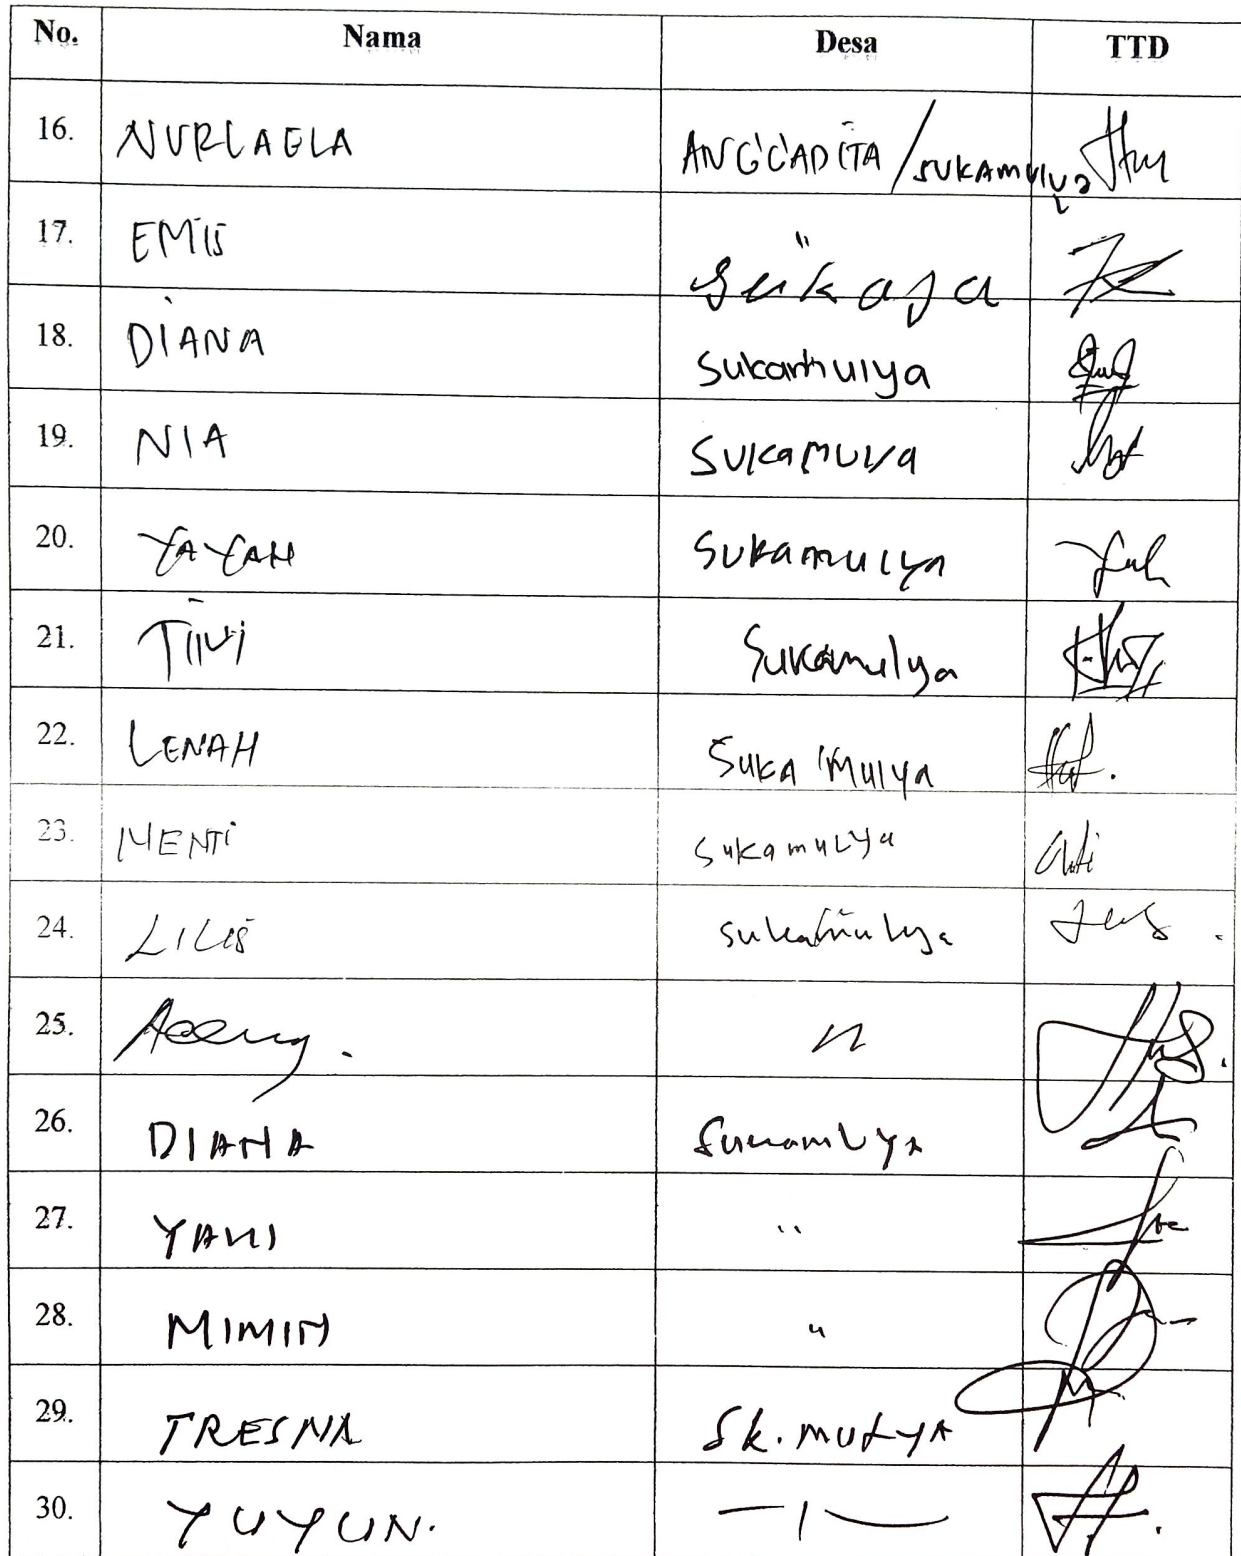 No. Nama Desa TTD
16. NURLAELA ANGGADITA / SUKAMULYA
17. EMIS "
18. DIANA Sukamulya
19. NIA SUKAMULYA
20. YAYAH SUKAMULYA
21. Sukamulya
22. LENAH SUKA MULYA
23. MENTI SUKAMULYA
24. LILIS sukamulya
25. "
26. DIANA Sukamulya
27. YANI "
28. MIMIN "
29. TRESNA Sk. MULYA
30. YUYUN. —1—